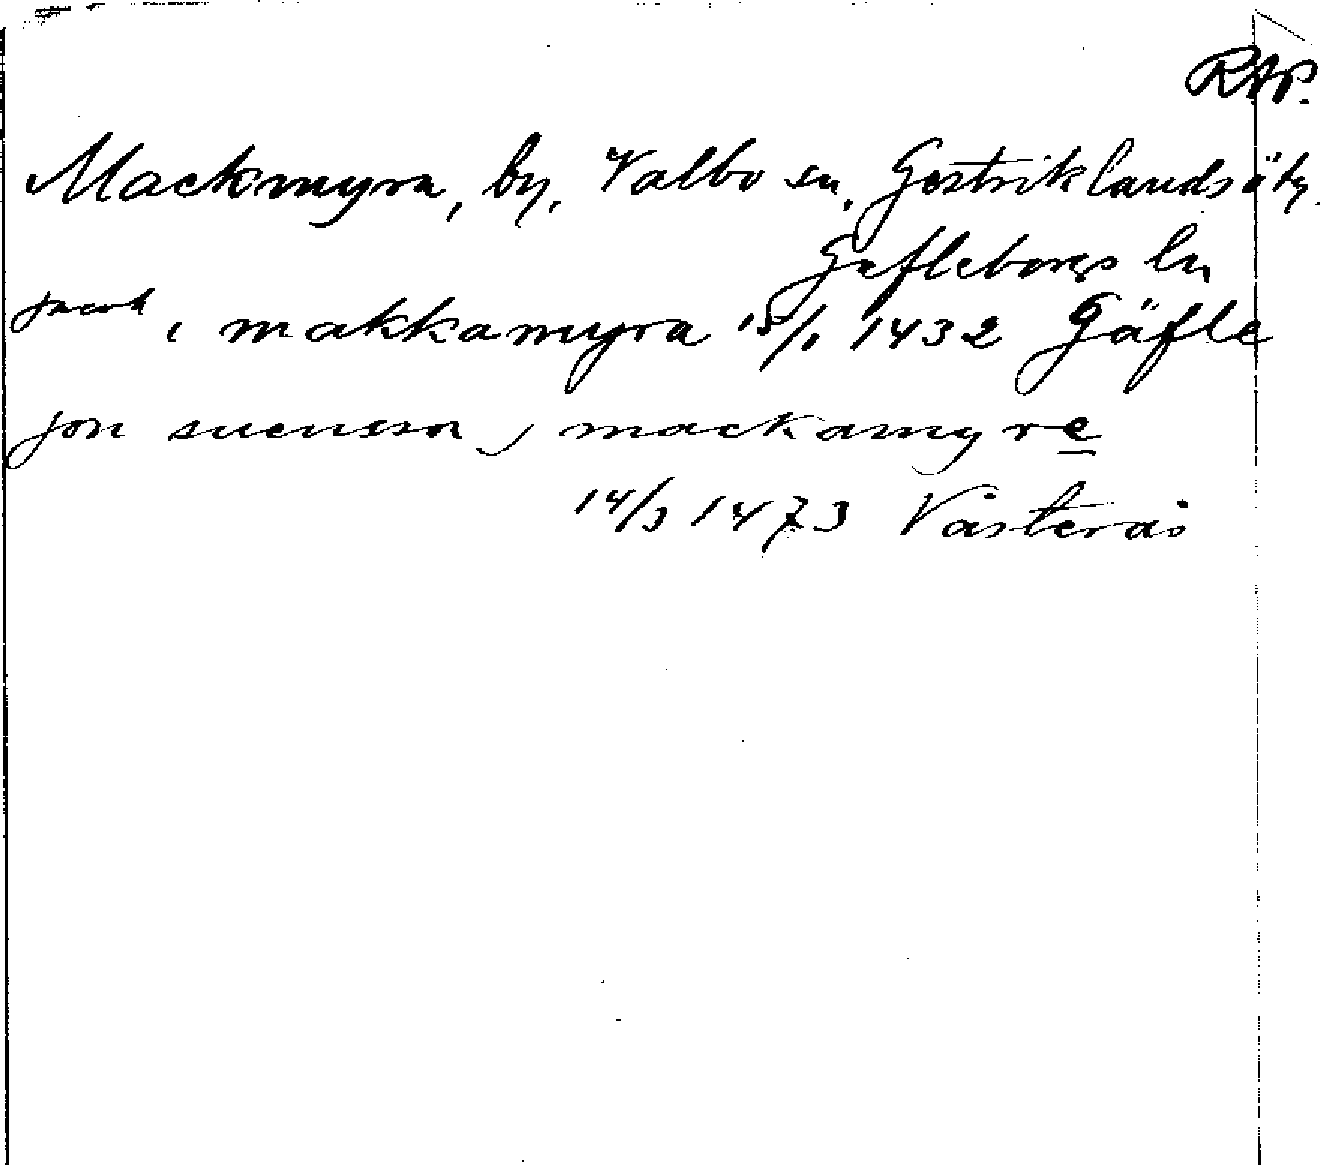 RAP.
Mackmyra, by, Valbo sn, Gestriklands ö tg.
Gefleborgs ln
jacob i makkamyra 15/1 1432 Gäfle
jon suensson j mackamyre
14/3 1473 Västerås